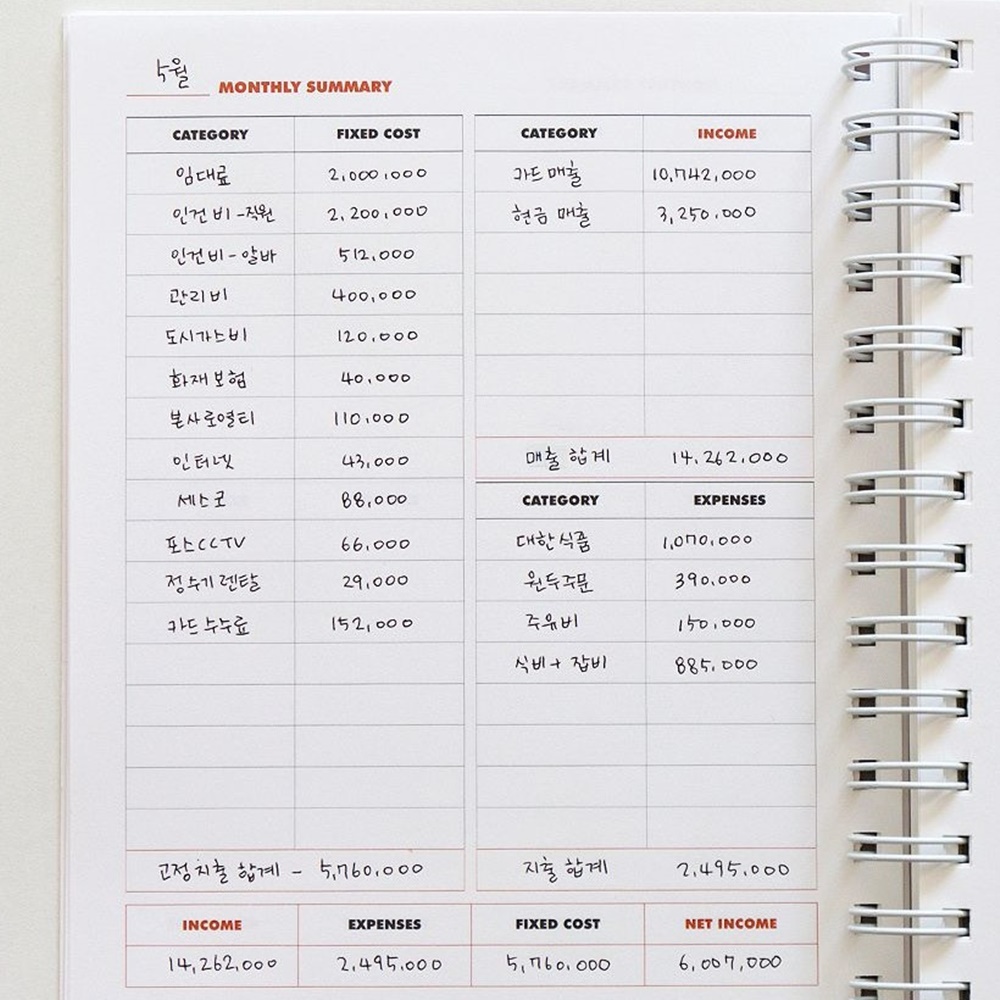 5월 MONTHLY SUMMARY
CATEGORY FIXED COST
임대료 2,000,000
인건비-직원 2,200,000
인건비-알바 512,000
관리비 400,000
도시가스비 120,000
화재보험 40,000
본사로열티 110,000
인터넷 43,000
세스코 88,000
포스CCTV 66,000
정수기렌탈 29,000
카드수수료 152,000
고정지출 합계 - 5,760,000
CATEGORY INCOME
카드매출 10,742,000
현금 매출 3,250,000
매출 합계 14,262,000
CATEGORY EXPENSES
대한식품 1,070,000
원두주문 390,000
주유비 150,000
식비+잡비 885,000
지출 합계 2,495,000
INCOME EXPENSES FIXED COST NET INCOME
14,262,000 2,495,000 5,760,000 6,007,000